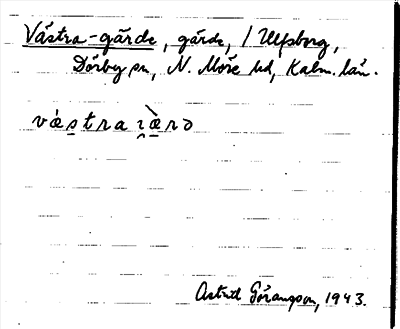 Västra-gärde, gärde, / Ulfsborg,
Dörby sn, N. Möre hd, Kalm. län.
västra jæ̀rd
Astrid Göransson, 1943.